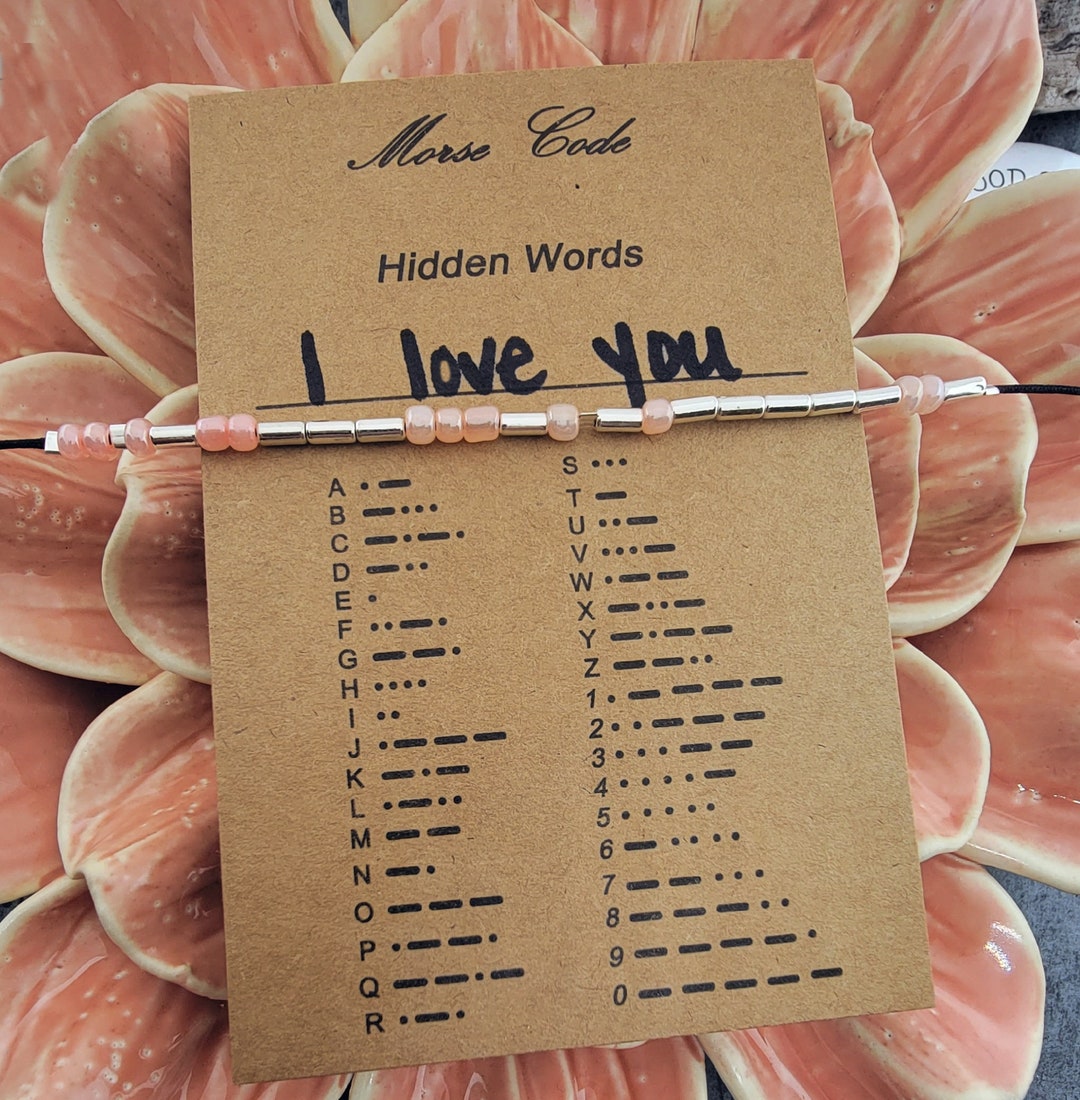 Morse Code
Hidden Words
I love you
A •—
B —•••
C —•—•
D —••
E •
F ••—•
G ——•
H ••••
I ••
J •———
K —•—
L •—••
M ——
N —•
O ———
P •——•
Q ——•—
R •—•
S •••
T —
U ••—
V •••—
W •——
X —••—
Y —•——
Z ——••
1 •————
2 ••———
3 •••——
4 ••••—
5 •••••
6 —••••
7 ——•••
8 ———••
9 ————•
0 —————